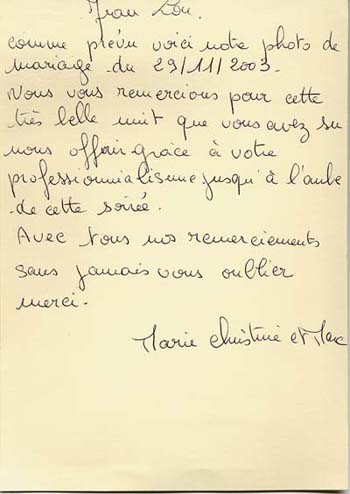 Jean Lou.
comme prévu voici notre photo de
mariage du 29/11/2003.
Nous vous remercions pour cette
très belle nuit que vous avez su
nous offrir grâce à votre
professionnialisme jusqu'à l'aube
de cette soirée.
Avec tous nos remerciements
sans jamais vous oublier
merci.
Marie Christine et Marc